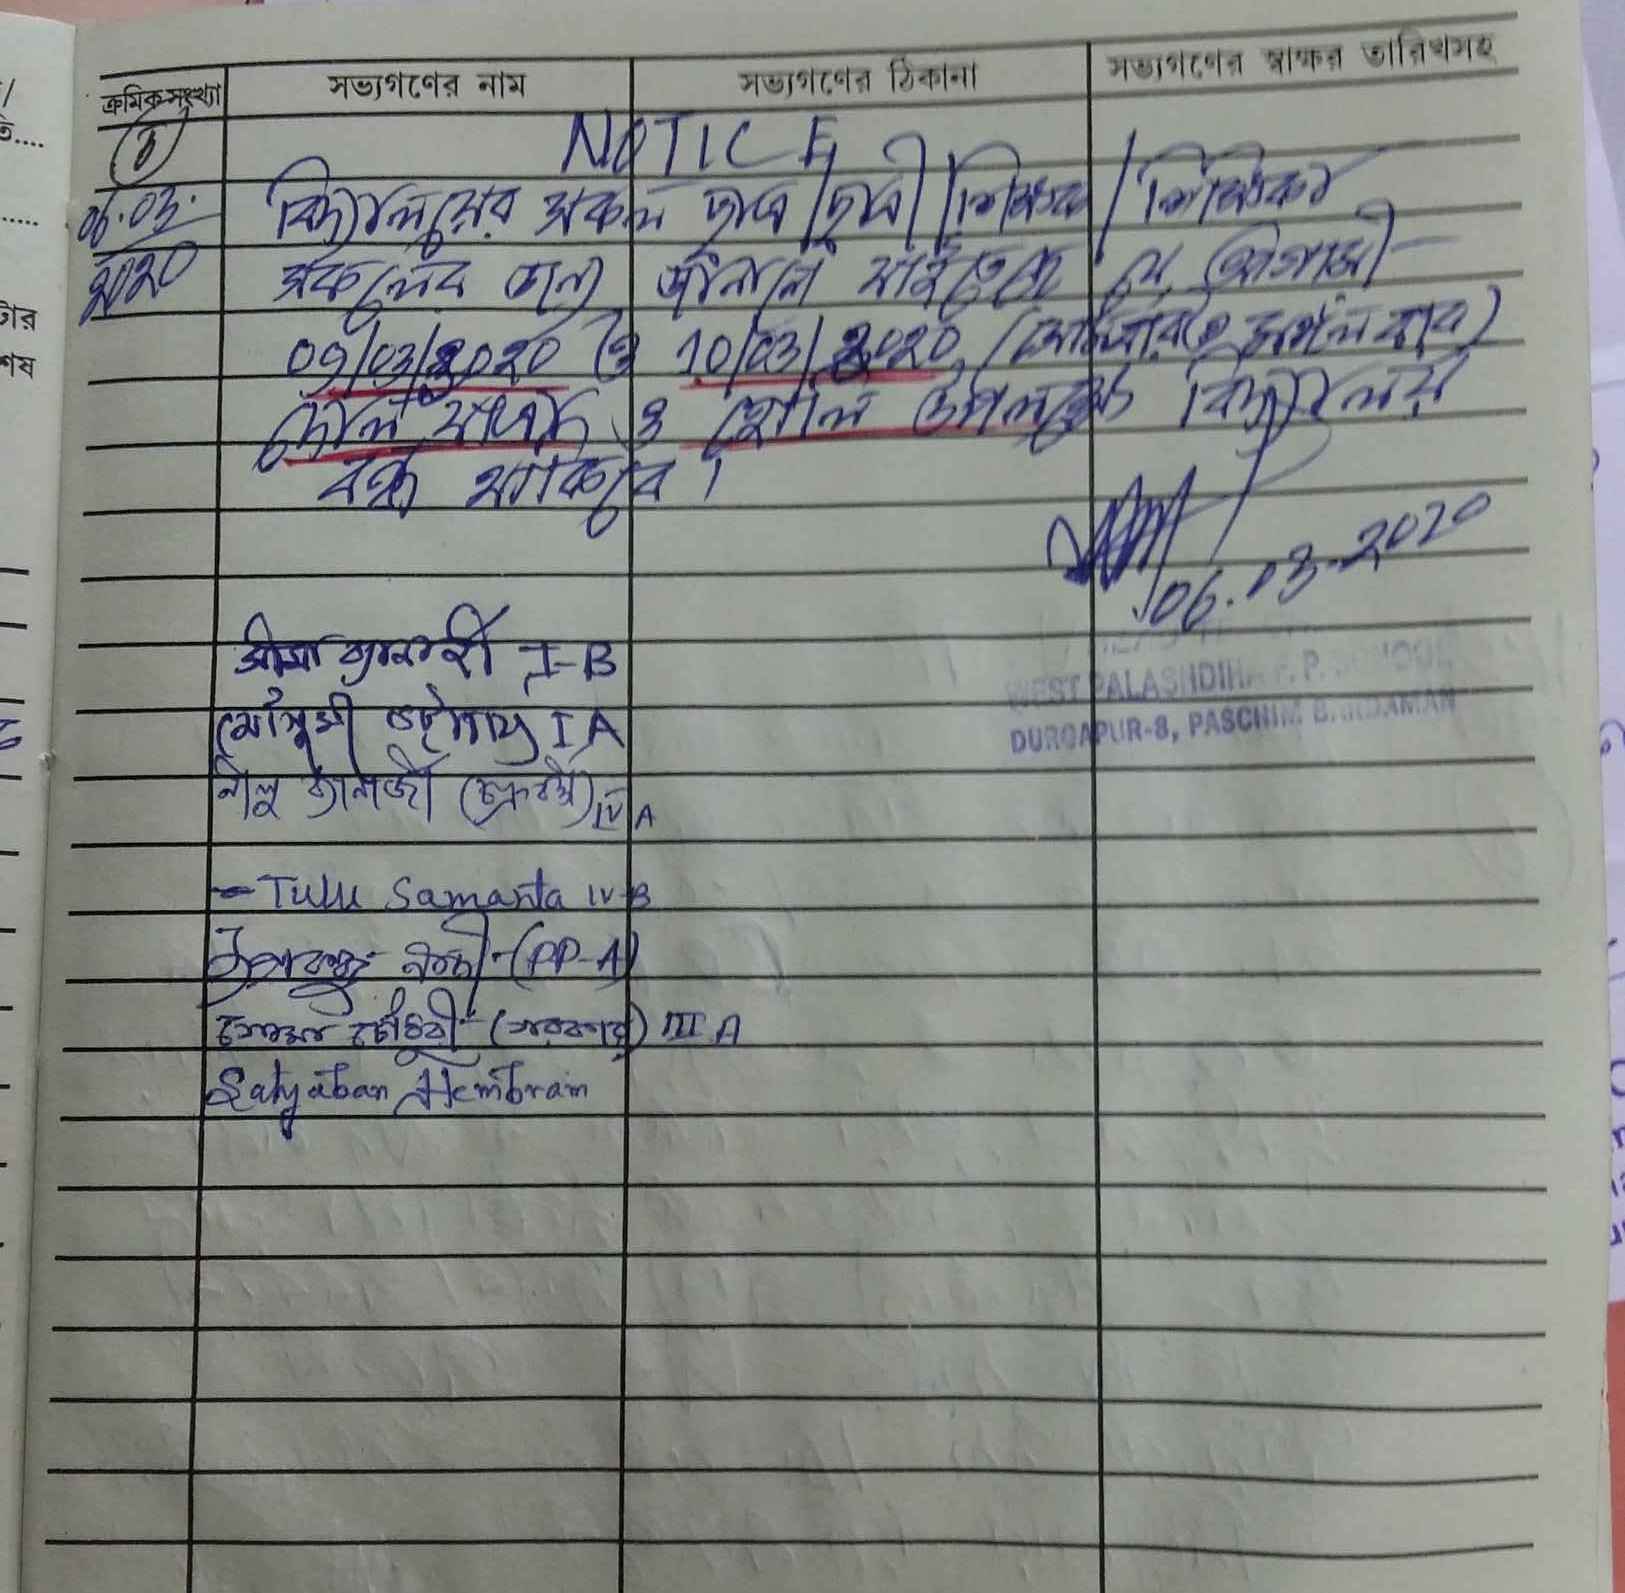 ক্রমিক সংখ্যা সভ্যগণের নাম সভ্যগণের ঠিকানা সভ্যগণের স্বাক্ষর তারিখসহ
NOTICE
06.03. বিদ্যালয়ের সকল ছাত্র/ছাত্রী/শিক্ষক/শিক্ষিকা
2020 সকলের জন্য জানানো যাইতেছে যে, আগামী
09/03/2020 ও 10/03/2020 (সোমবার ও মঙ্গলবার)
দোল যাত্রা ও হোলি উপলক্ষ্যে বিদ্যালয়
বন্ধ থাকিবে।
06.03.2020
WEST PALASHDIHA F. P. SCHOOL
DURGAPUR-8, PASCHIM BARDAMAN
সীমা ব্যানার্জী I-B
মৌসুমী IA
নীলু ব্যানার্জী (চক্রবর্তী) IV A
- Tulu Samanta IV-B
(PP-A)
চৌধুরী (সরকার) III A
Satyaban Hembram